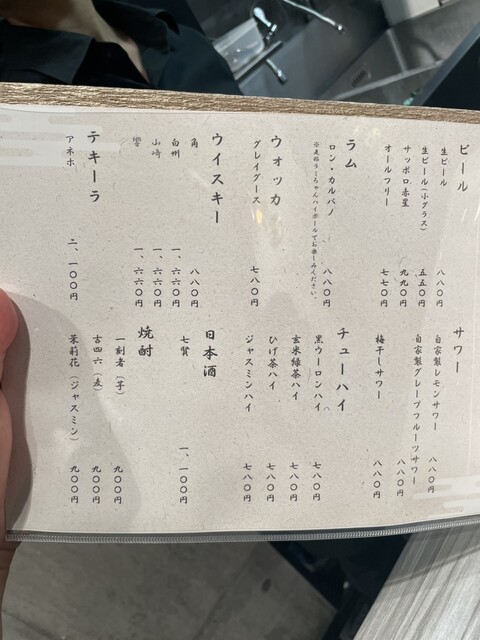 ビール
生ビール 八八〇円
生ビール(小グラス) 五五〇円
サッポロ赤星 九九〇円
オールフリー 七七〇円
ラム
ロン・カルバノ 八八〇円
ウォッカ
グレイグース 七八〇円
ウイスキー
角 八八〇円
白州 一、六六〇円
山崎 一、六六〇円
響 一、六六〇円
テキーラ
アネホ 二、一〇〇円
サワー
自家製レモンサワー 八八〇円
自家製グレープフルーツサワー 八八〇円
梅干しサワー 八八〇円
チューハイ
黒ウーロンハイ 七八〇円
玄米緑茶ハイ 七八〇円
ひげ茶ハイ 七八〇円
ジャスミンハイ 七八〇円
日本酒
七賢 一、一〇〇円
焼酎
一刻者(芋) 九〇〇円
吉四六(麦) 九〇〇円
茉莉花(ジャスミン) 九〇〇円